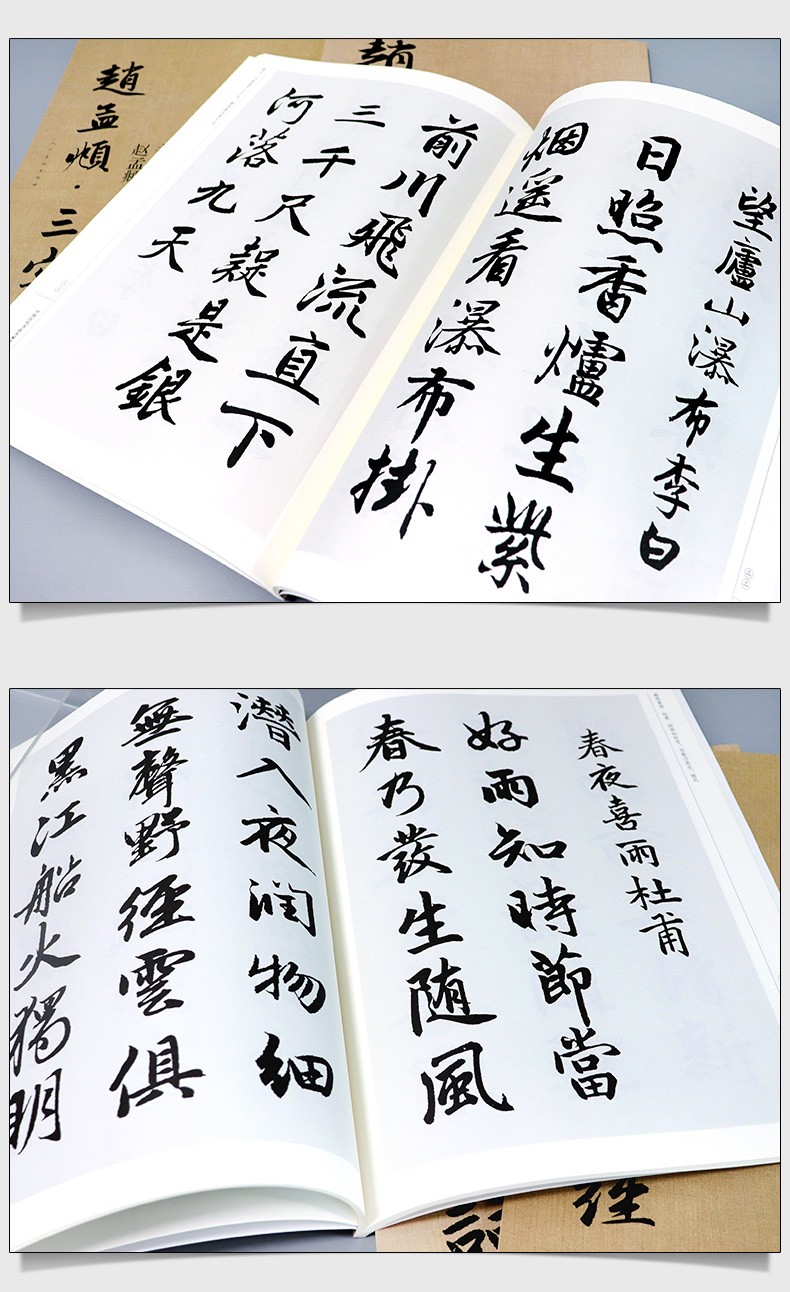 趙孟頫·三字
趙
望廬山瀑布李白
日照香爐生紫
烟遥看瀑布掛
前川飛流直下
三千尺疑是銀
河落九天
春夜喜雨杜甫
好雨知時節當
春乃發生随風
潛入夜润物細
無聲野徑雲俱
黑江船火獨明